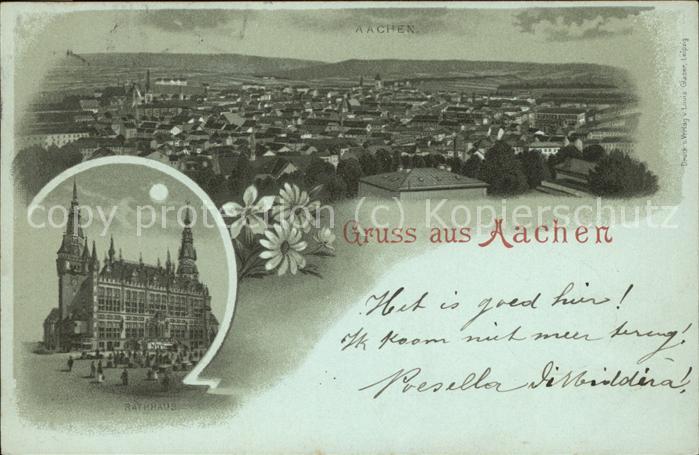 AACHEN.
Druck u. Verlag v. Louis Glaser, Leipzig
copy protect Kopierschutz
Gruss aus Aachen
Het is goed hier!
Ik koom niet meer terug!
RATHHAUS